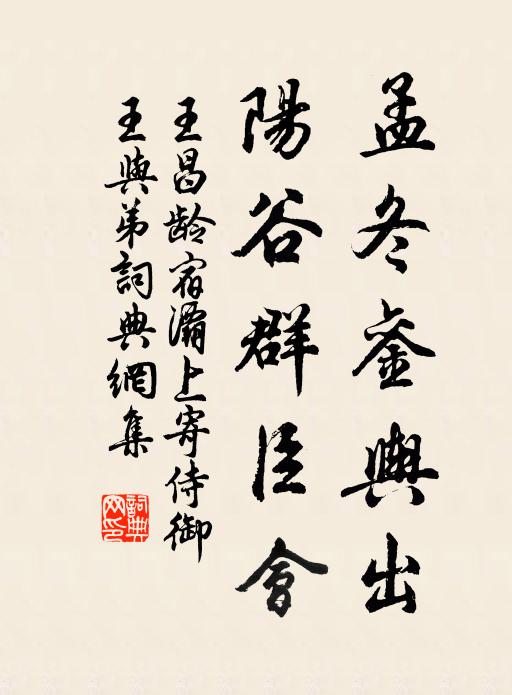 孟冬銮輿出
陽谷群臣會
王昌龄宿灞上寄侍御
王與弟詞典網集
詞典网印